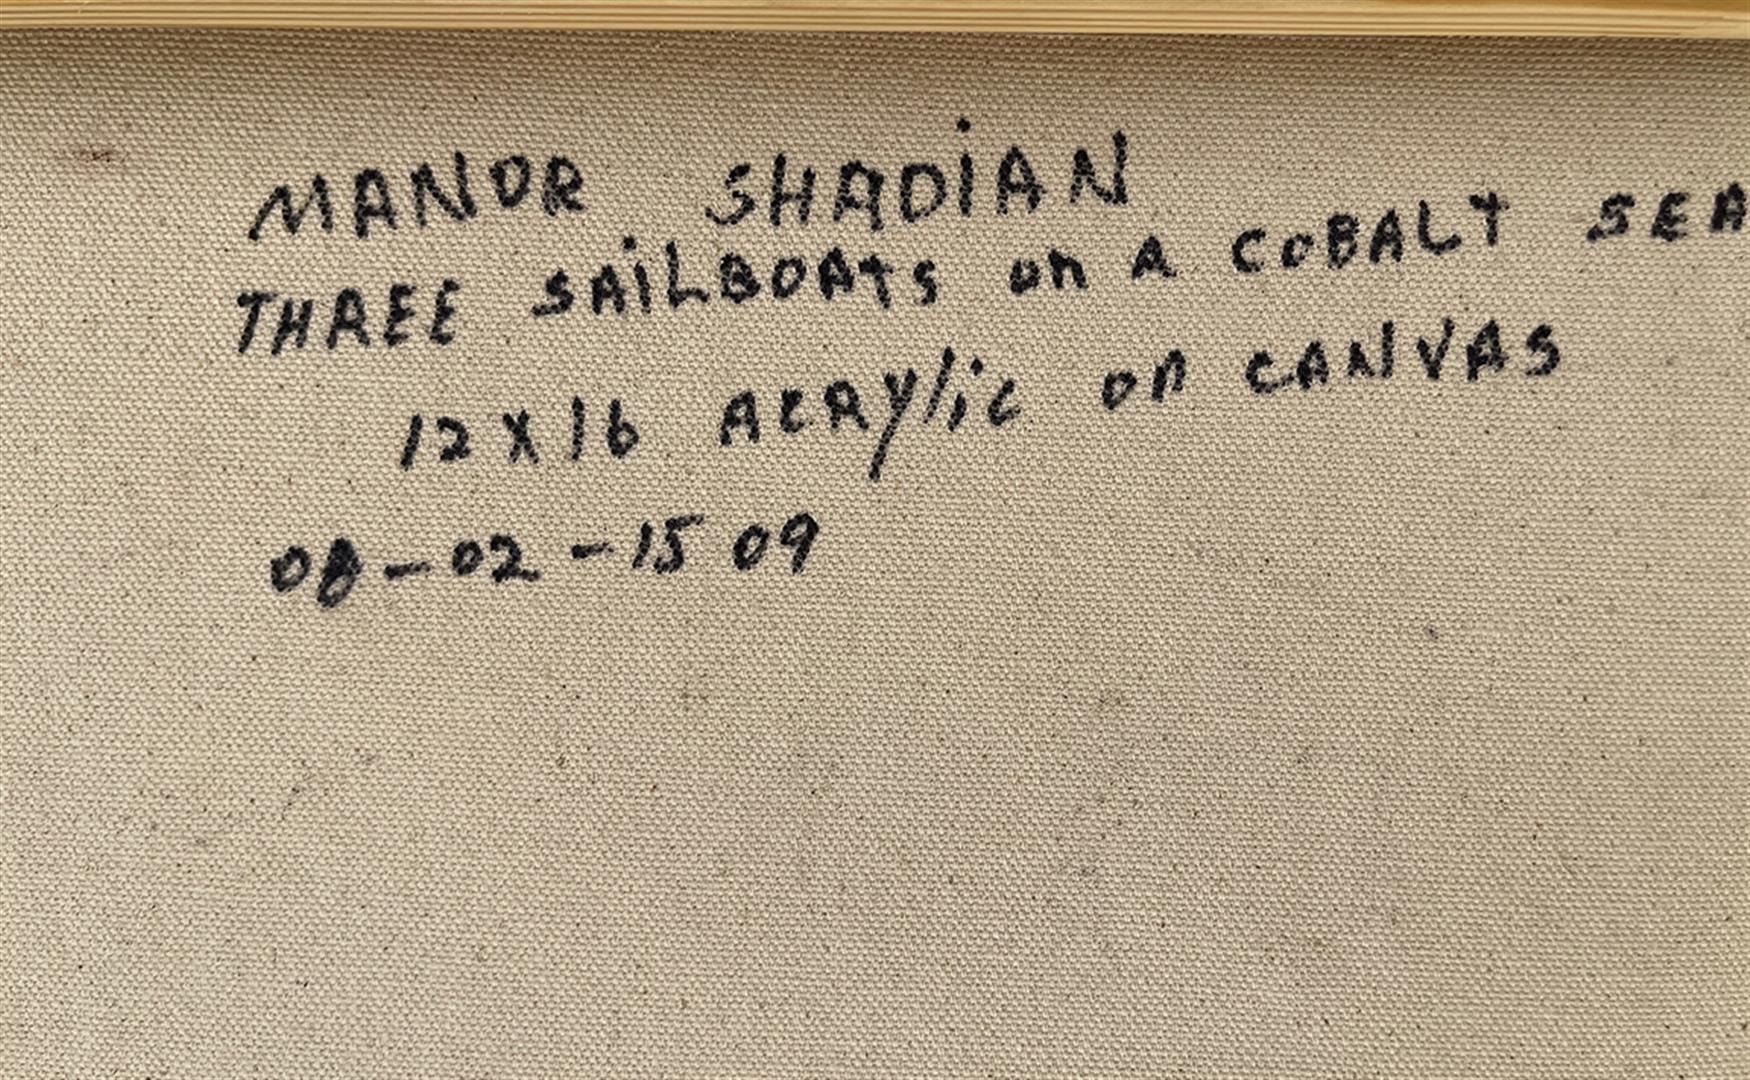 MANOR SHADiAN
THREE SAiLBOATS on A COBALT SEA
12X16 ACRYlic on CANVAS
08-02-1509